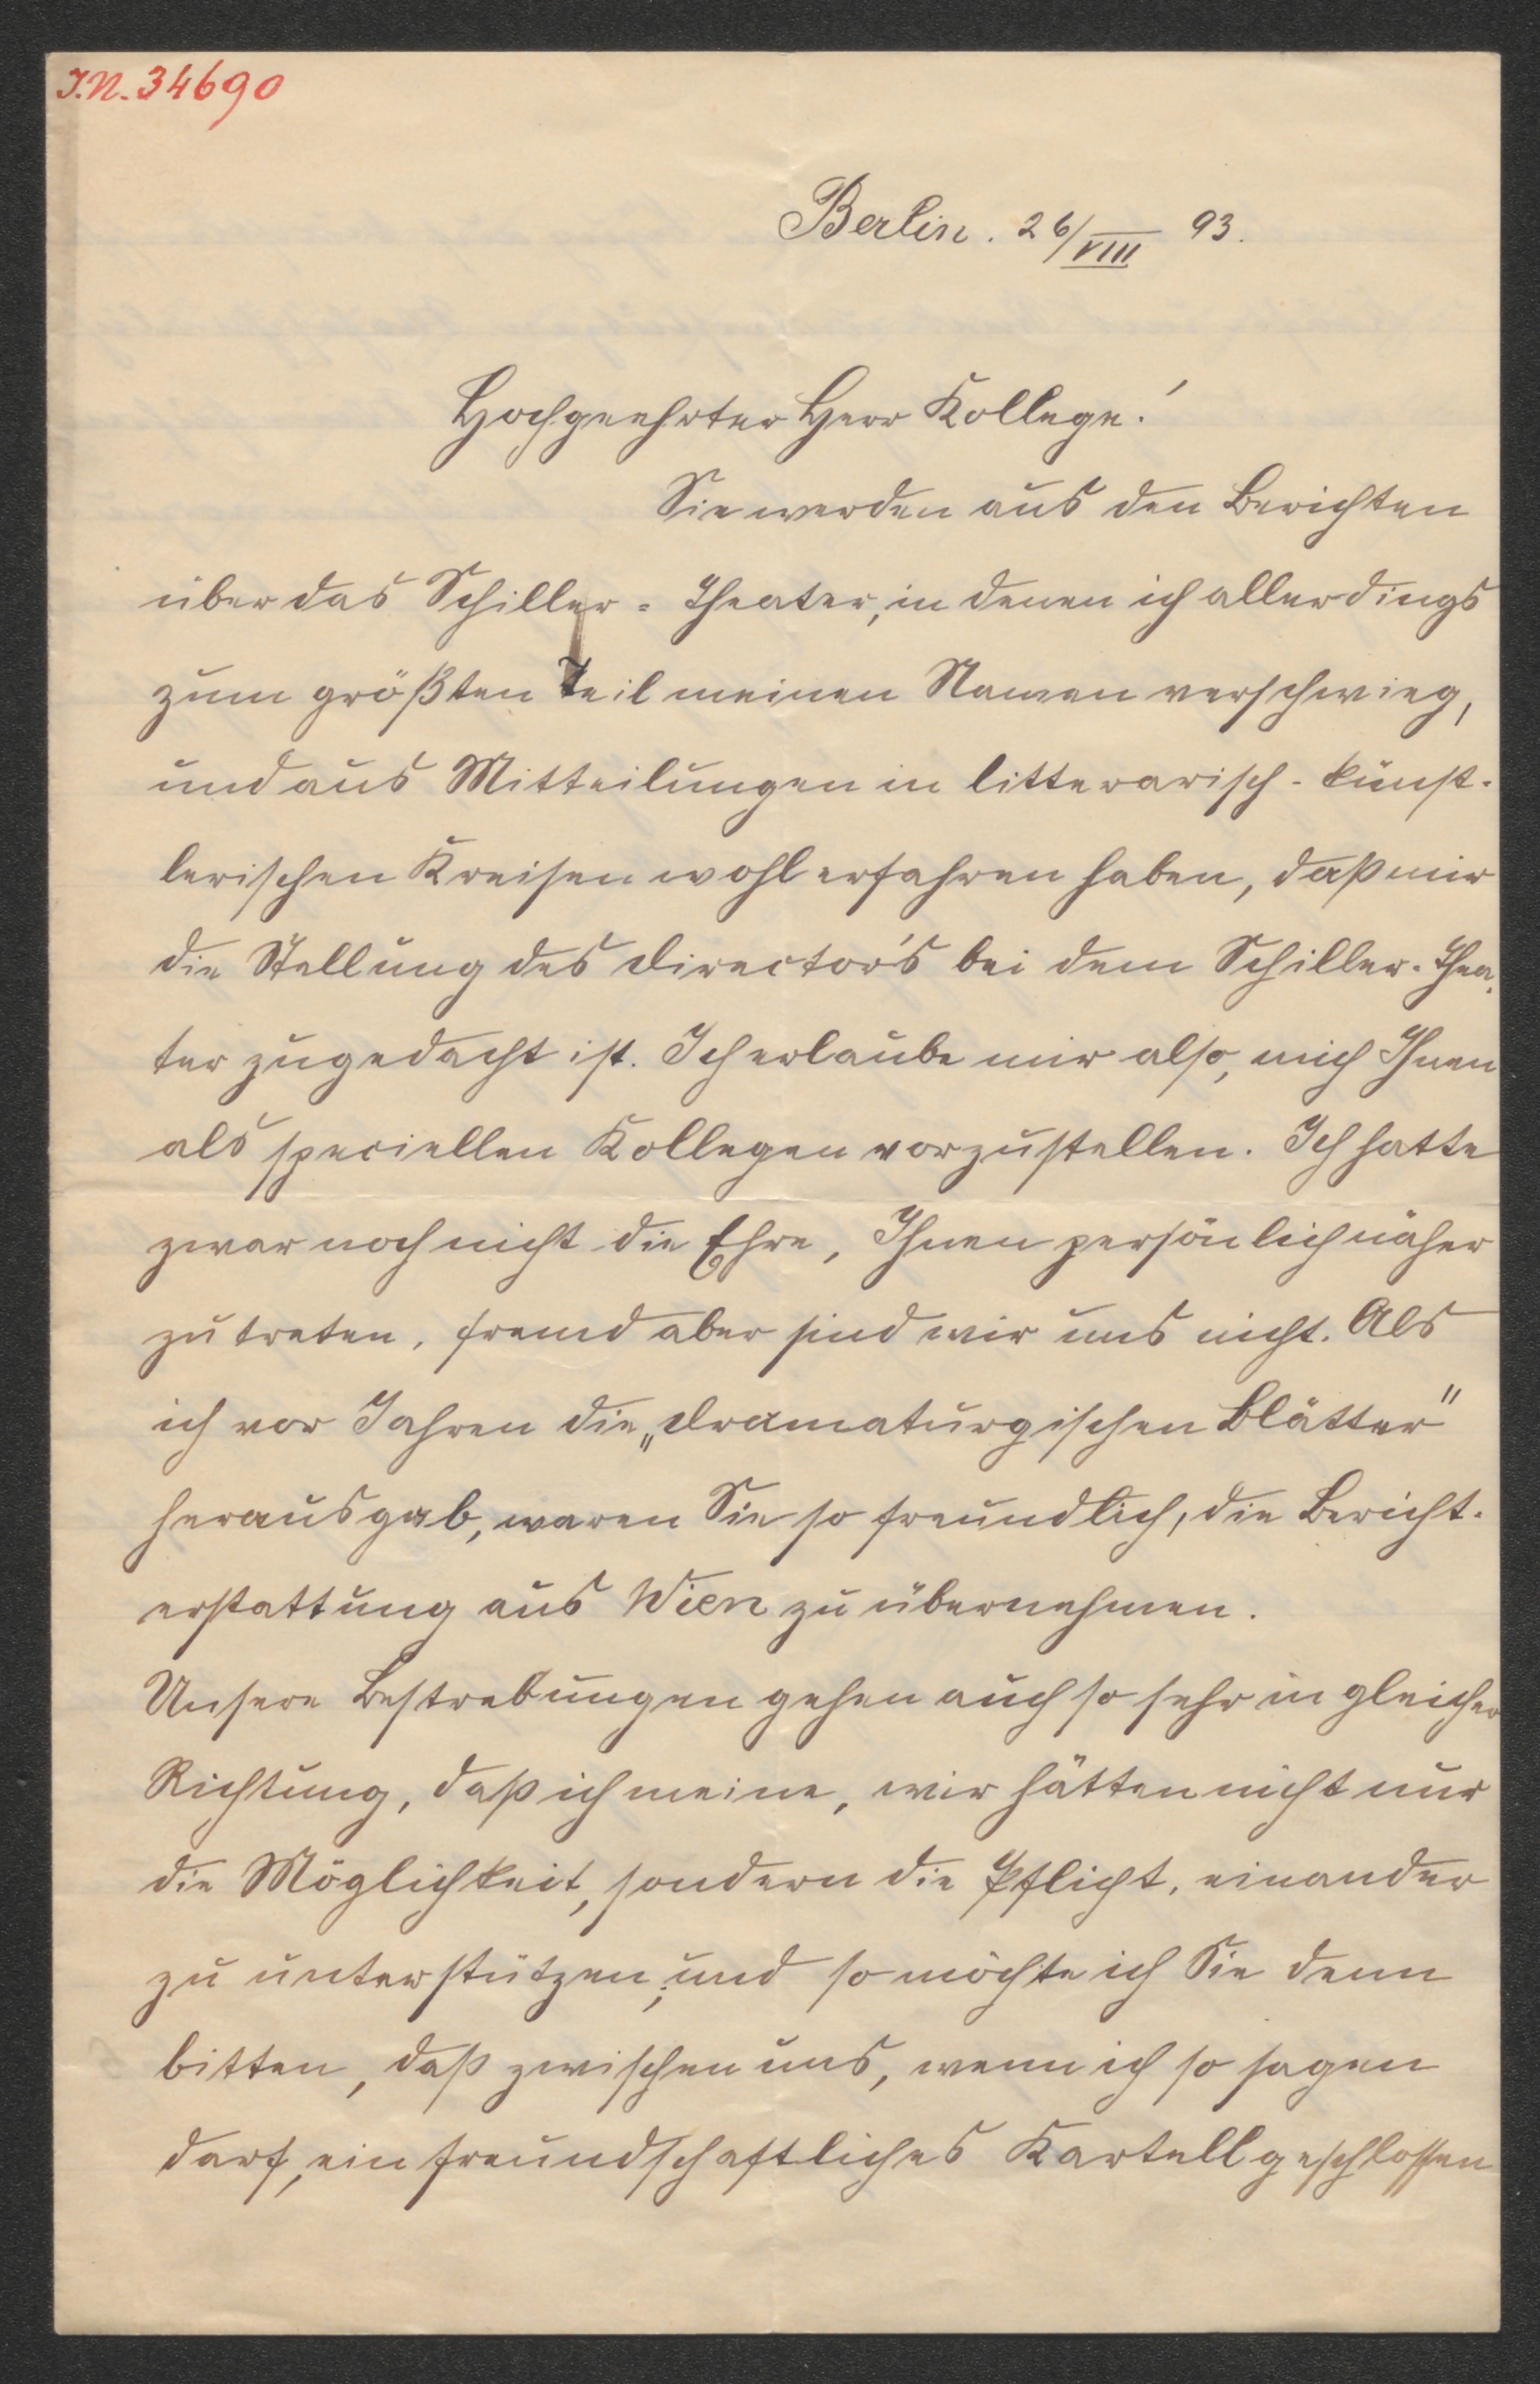 I.N. 34690
Berlin. 26/VIII 93.
Hochgeehrter Herr Kollege!
Sie werden aus den Berichten
über das Schiller-Theater, in denen ich allerdings
zum größten Teil meinen Namen verschwieg,
und aus Mitteilungen in litterarisch-künst-
lerischen Kreisen wohl erfahren haben, daß mir
die Stellung des Director's bei dem Schiller-Thea-
ter zugedacht ist. Ich erlaube mir also, mich Ihnen
als speciellen Kollegen vorzustellen. Ich hatte
zwar noch nicht die Ehre, Ihnen persönlich näher
zu treten, fremd aber sind wir uns nicht. Als
ich vor Jahren die „Dramaturgischen Blätter"
herausgab, waren Sie so freundlich, die Bericht-
erstattung aus Wien zu übernehmen.
Unsere Bestrebungen gehen auch so sehr in gleicher
Richtung, daß ich meine, wir hätten nicht nur
die Möglichkeit, sondern die Pflicht, einander
zu unterstützen; und so möchte ich Sie denn
bitten, daß zwischen uns, wenn ich so sagen
darf, ein freundschaftliches Kartell geschlossen